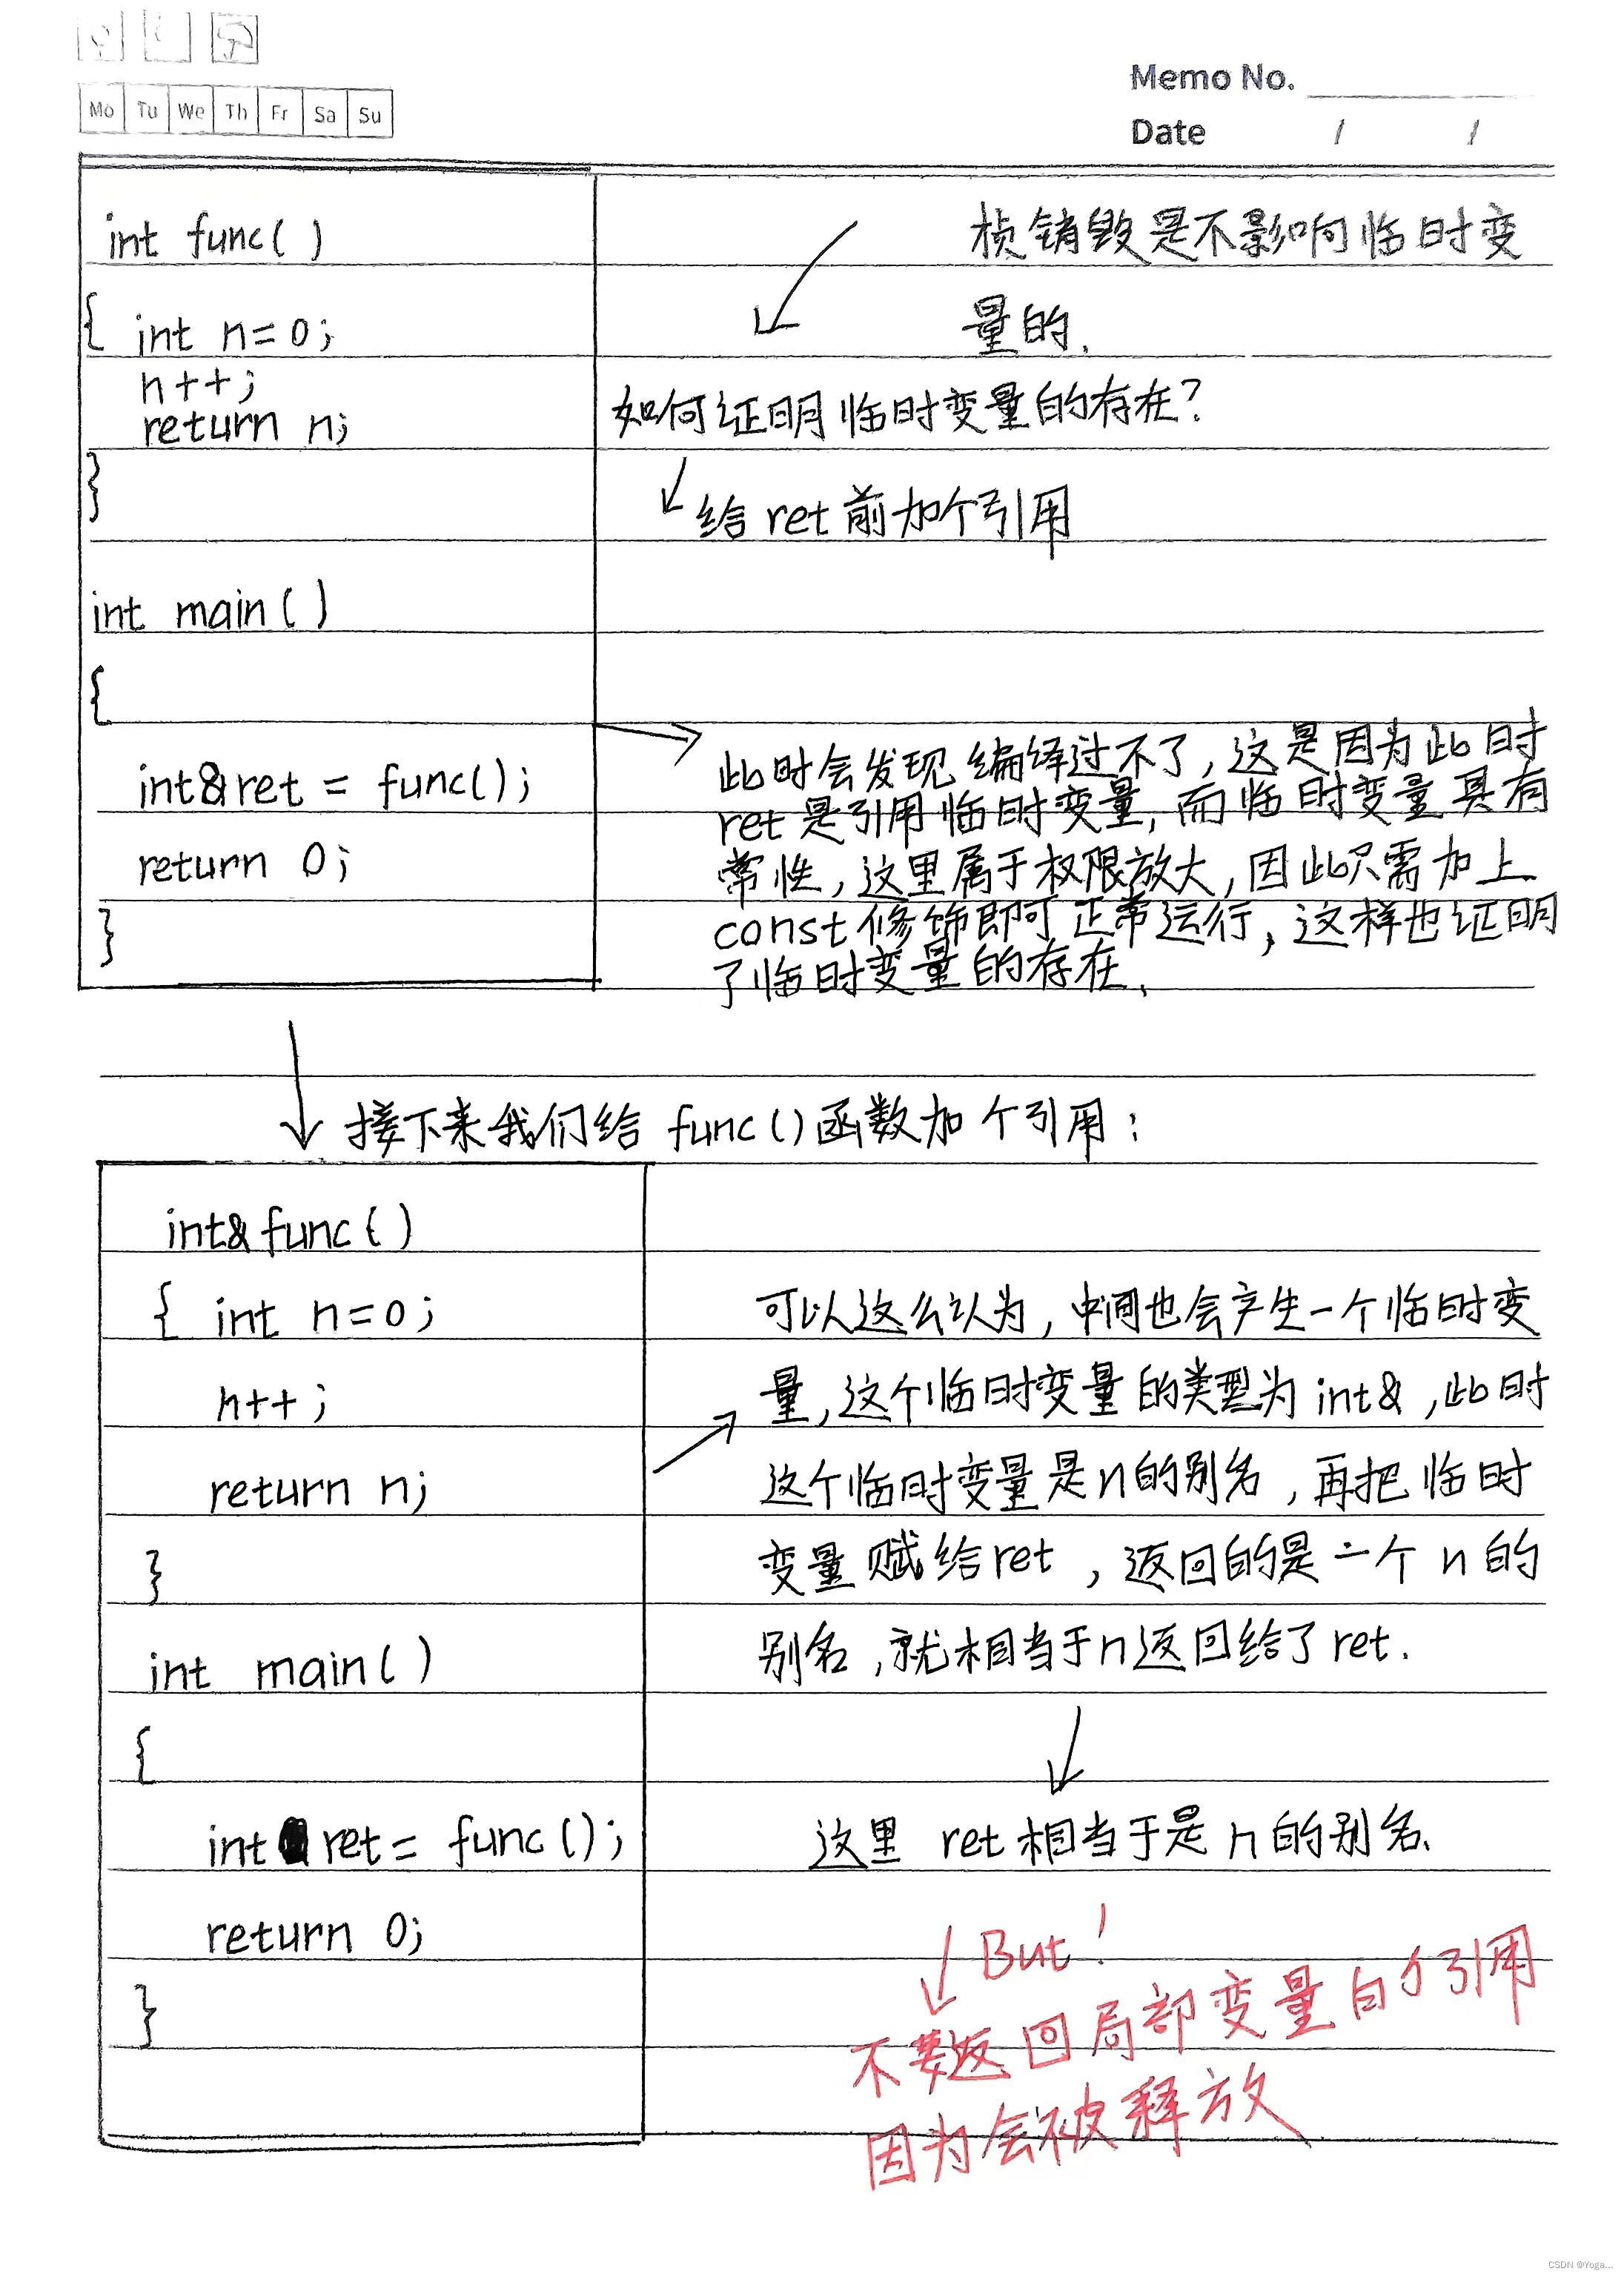 Mo Tu We Th Fr Sa Su
Memo No.
Date / /
int func()
{ int n=0;
n++;
return n;
}
int main()
{
int&ret = func();
return 0;
}
桢销毁是不影响临时变
量的.
如何证明临时变量的存在?
给ret前加个引用
此时会发现编绎过不了,这是因为此时
ret是引用临时变量,而临时变量具有
常性,这里属于权限放大,因此只需加上
const修饰即可正常运行,这样也证明
了临时变量的存在.
接下来我们给 func()函数加个引用:
int&func()
{ int n=0;
n++;
return n;
}
int main()
{
int ret= func();
return 0;
}
可以这么认为,中间也会产生一个临时变
量,这个临时变量的类型为int&,此时
这个临时变量是n的别名,再把临时
变量赋给ret,返回的是一个n的
别名,就相当于n返回给了ret.
这里 ret相当于是n的别名.
But!
不要返回局部变量的引用
因为会被释放
CSDN @Yoga...